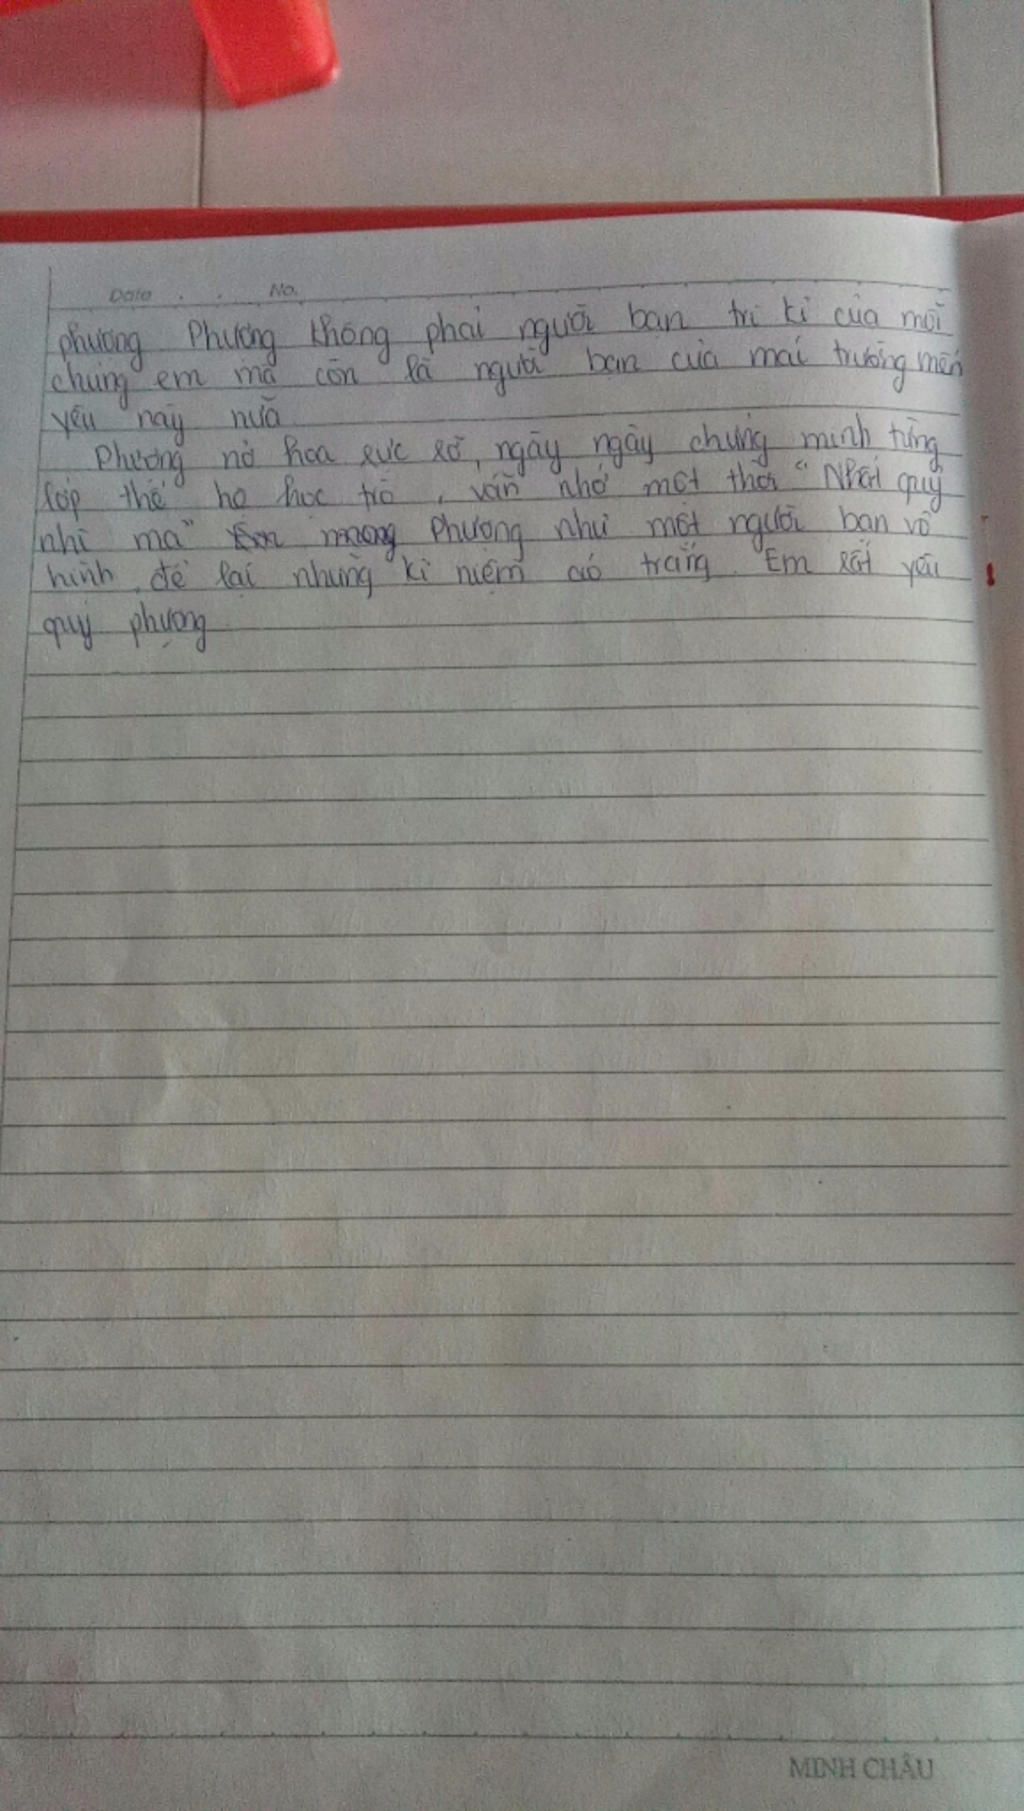 Date . . No.
phượng Phượng không phải người bạn tri kỉ của mỗi
chúng em mà còn là người bạn của mái trường mến
yêu này nữa
Phượng nở hoa rực rỡ, ngày ngày chứng minh từng
lớp thế hệ học trò, vẫn nhớ một thời "Nhất quỷ
nhì ma" mong Phượng như một người bạn vô
hình, để lại những kỉ niệm áo trắng. Em rất yêu
quý phượng
MINH CHÂU